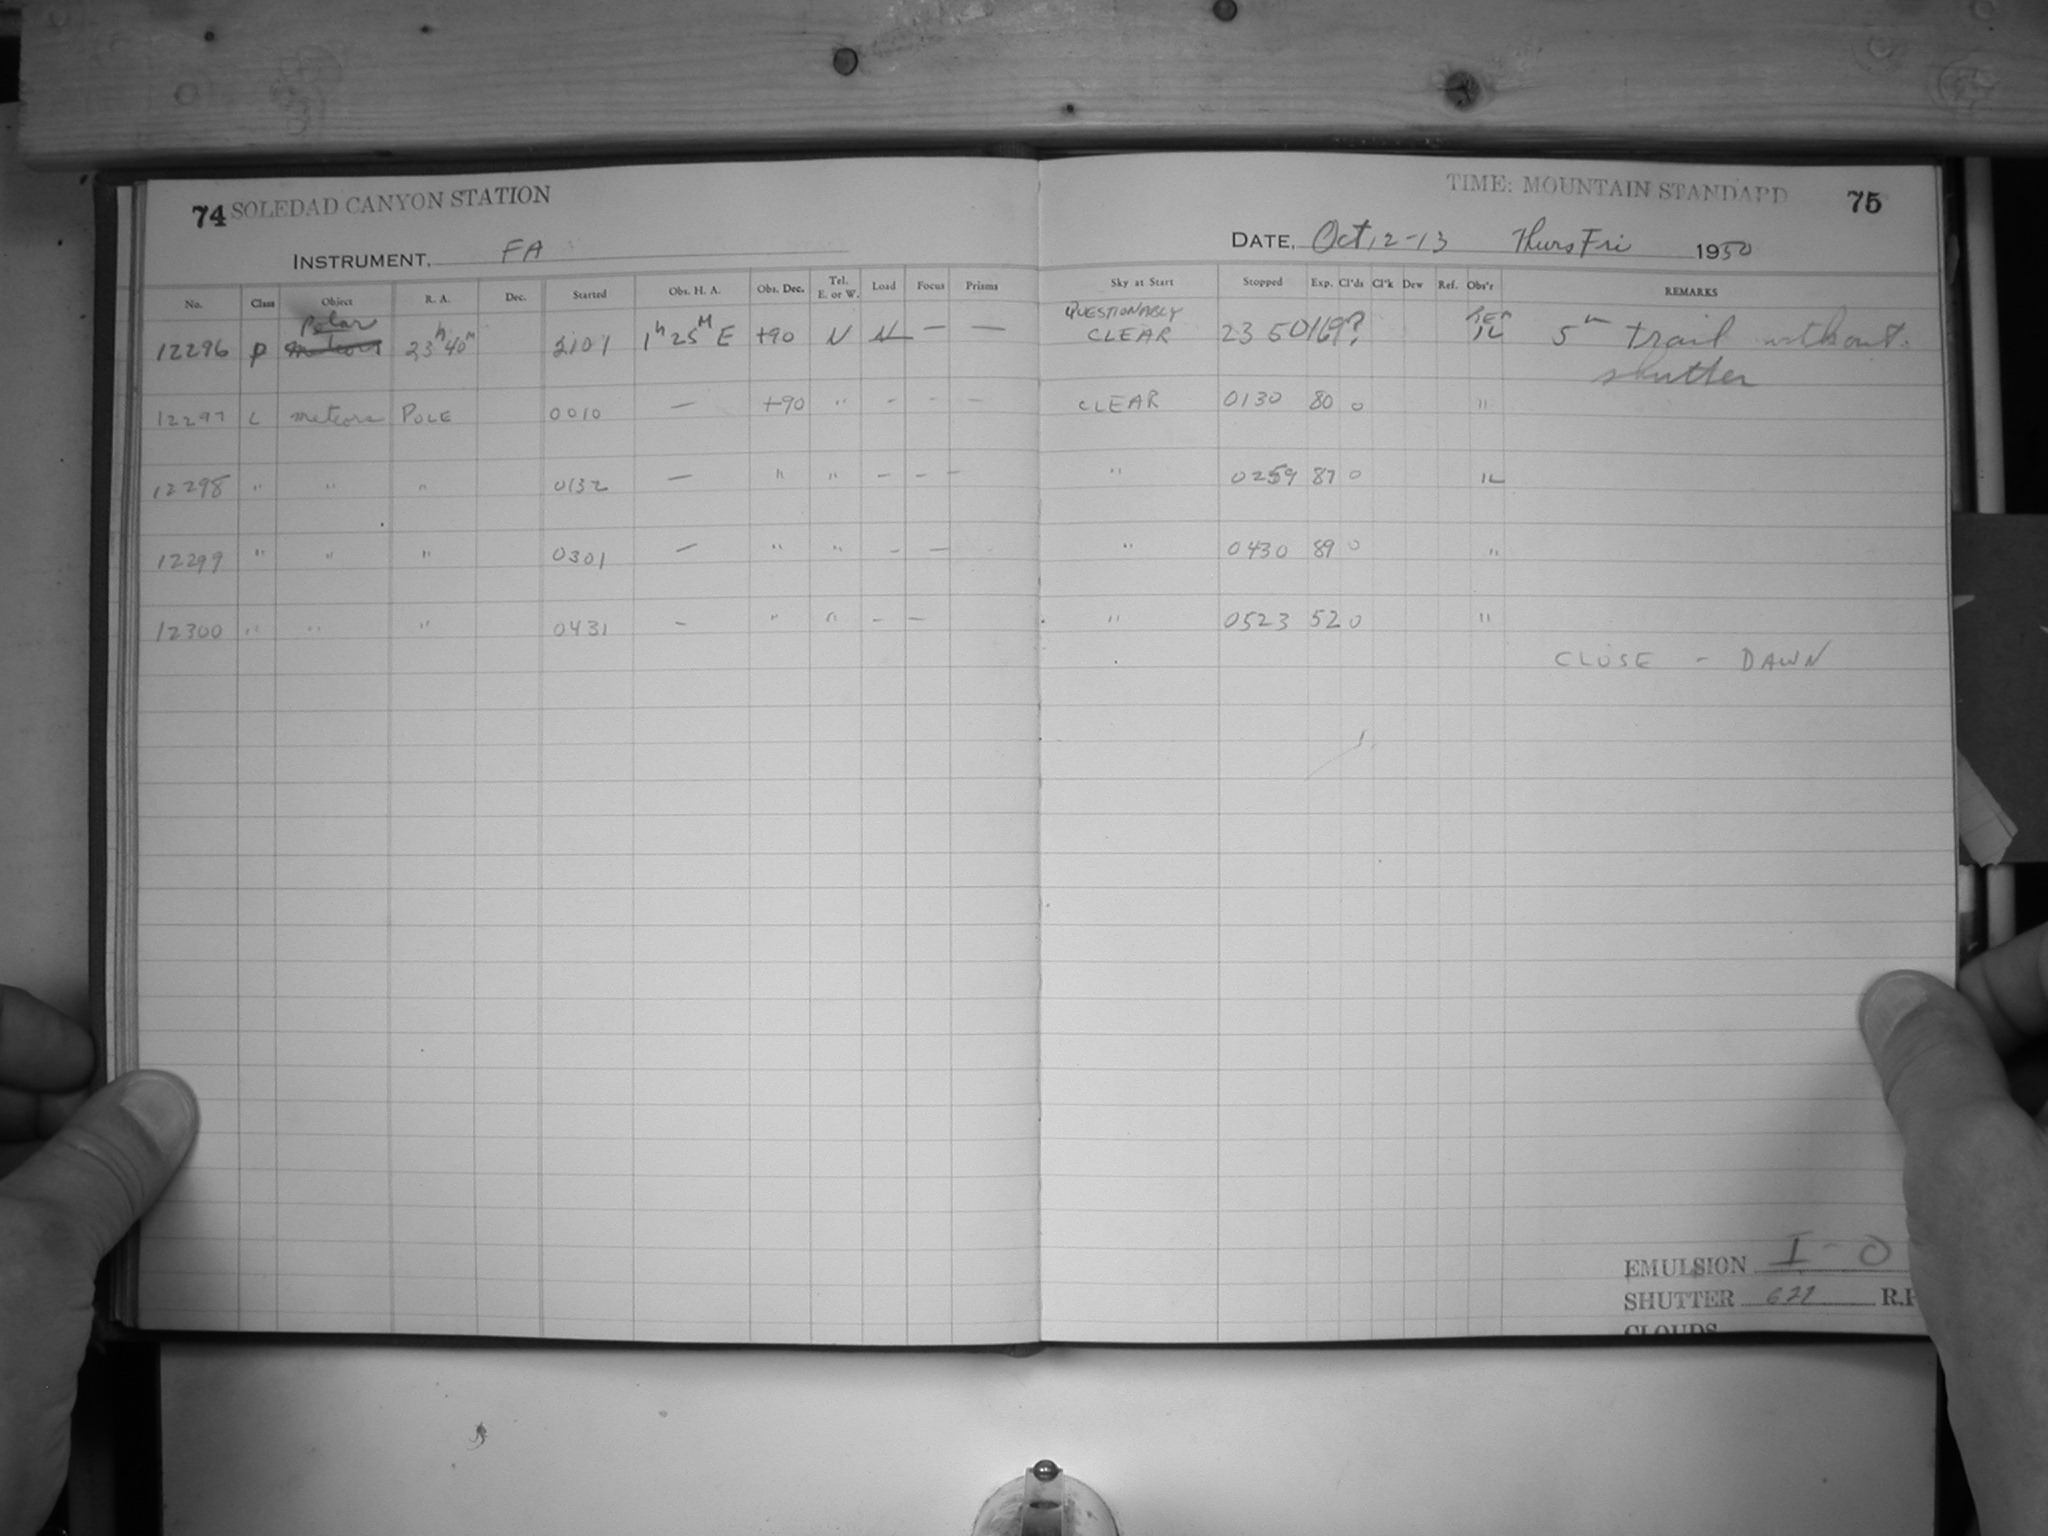 74 SOLEDAD CANYON STATION
TIME: MOUNTAIN STANDARD 75
INSTRUMENT, FA
DATE, Oct 12-13 Thurs Fri 1950
No. Class Object R. A. Dec. Started Obs. H. A. Obs. Dec. Tel. E. or W. Load Focus Prisms Sky at Start Stopped Exp. Cl'ds Cl'k Dew Ref. Obs'r REMARKS
Polar QUESTIONABLY
12296 P meteors 23h 40m 2101 1h 25M E +90 N N — — CLEAR 2350 169? IL 5m trail without
shutter
12297 C meteors POLE 0010 — +90 " - - - CLEAR 0130 80 0 "
12298 " " " 0132 — " " - - - " 0259 87 0 IL
12299 " " " 0301 — " " - - " 0430 89 0 "
12300 " " " 0431 - " " - - " 0523 52 0 "
CLOSE - DAWN
EMULSION I-O
SHUTTER R.P
CLOUDS